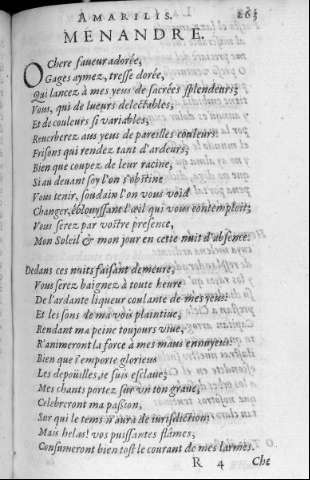 AMARILIS. 263
MENANDRE.
O Chere faueur adorée,
Gages aymez, tresse dorée,
Qui lancez à mes yeus de sacrées splendeurs;
Vous, qui de lueurs delectables,
Et de couleurs si variables,
Reuerberez aus yeus de pareilles couleurs.
Frisons qui rendez tant d'ardeurs,
Bien que coupez de leur racine,
Si au deuant soy l'on s'obstine
Vous tenir, soudain l'on vous void
Changer, éblouyssant l'œil qui vous contemploit;
Vous serez par vostre presence,
Mon Soleil & mon jour en cette nuit d'absence.
Dedans ces nuits faisant demeure,
Vous serez baignez à toute heure
De l'ardante liqueur coulante de mes yeus:
Et les sons de ma vois plaintiue,
Rendant ma peine toujours viue,
R'animeront la force à mes maus ennuyeus.
Bien que i'emporte glorieus
Les depoüilles, ie suis esclaue;
Mes chants portez sur vn ton graue,
Celebreront ma passion,
Sur qui le tems n'aura de iurisdiction:
Mais helas! vos puissantes flâmes,
Consumeront bien tost le courant de mes larmes.
R 4 Che